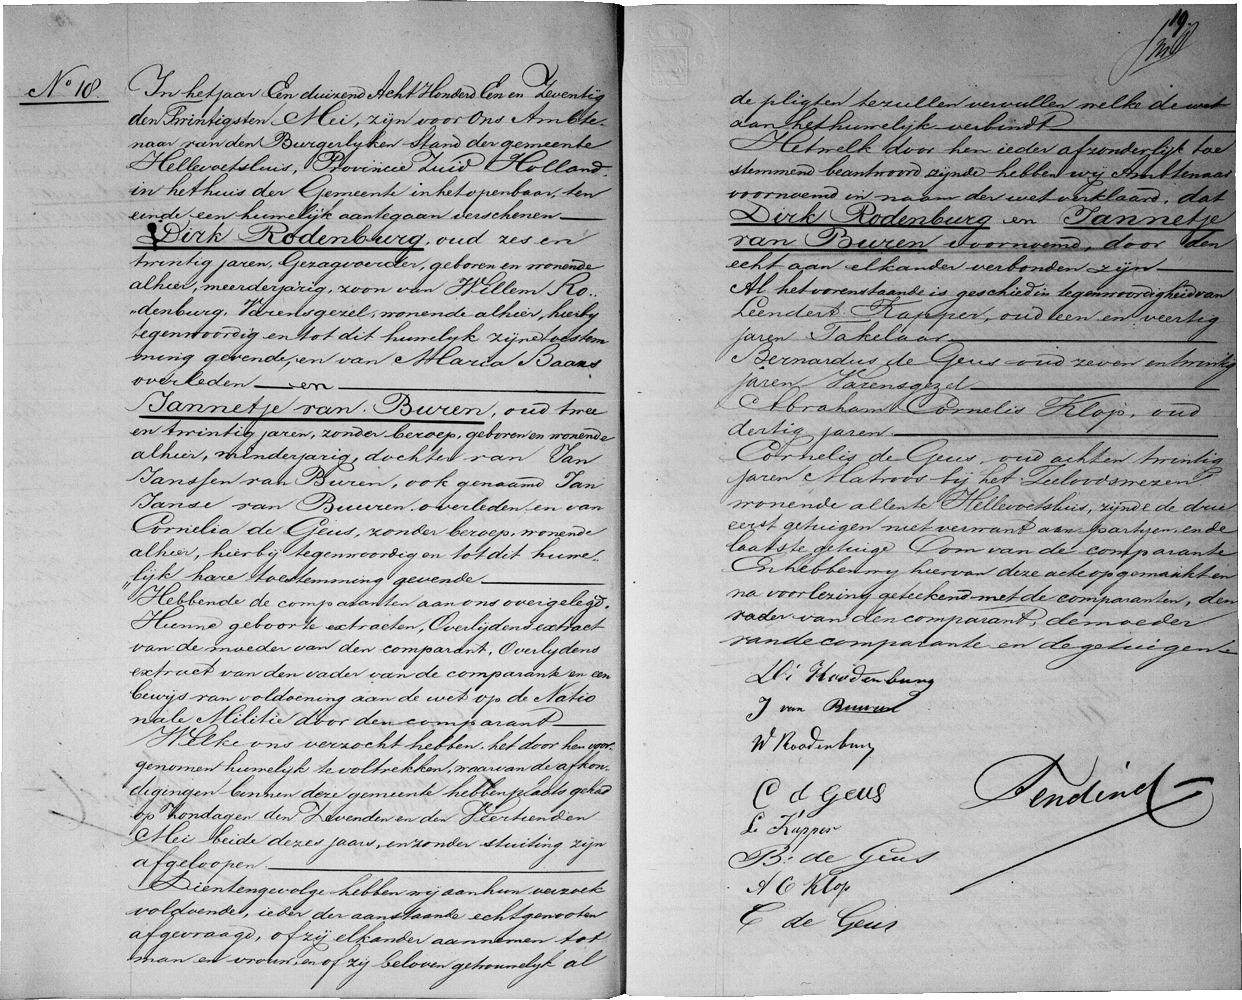 No 18
In het jaar Een duizend Acht Honderd Een en Zeventig
den Twintigsten Mei, zijn voor Ons Ambte-
naar van den Burgerlyken Stand der gemeente
Hellevoetsluis, Provincie Zuid Holland
in het huis der Gemeente in het openbaar, ten
einde een huwelijk aantegaan verschenen
Dirk Rodenburg, oud zes en
twintig jaren, Gezagvoerder, geboren en wonende
alhier, meerderjarig, zoon van Willem Ro-
denburg, Varensgezel, wonende alhier, hierbij
tegenwoordig en tot dit huwelyk zijne toestem
ming gevende, en van Maria Baans
overleden en
Jannetje van Buren, oud twee
en twintig jaren, zonder beroep, geboren en wonende
alhier, minderjarig, dochter van Jan
Janssen van Buren, ook genaamd Jan
Janse van Buuren overleden en van
Cornelia de Geus, zonder beroep, wonende
alhier, hierbij tegenwoordig en tot dit huwe-
lijk hare toestemming gevende
Hebbende de comparanten aan ons overgelegd.
Hunne geboorte extracten, Overlijdens extract
van de moeder van den comparant, Overlydens
extract van den vader van de comparante en een
bewijs van voldoening aan de wet op de Natio
nale Militie door den comparant
Welke ons verzocht hebben het door hen voor-
genomen huwelijk te voltrekken, waarvan de afkon-
digingen binnen deze gemeente hebben plaats gehad
op Zondagen den Zevenden en den Veertienden
Mei beide dezes jaars, en zonder stuiting zijn
afgeloopen
Dientengevolge hebben wij aan hun verzoek
voldoende, ieder der aanstaande echtgenooten
afgevraagd, of zij elkander aannemen tot
man en vrouw, en of zij beloven getrouwelijk al
19.
de pligten te zullen vervullen welke de wet
aan het huwelijk verbindt
Hetwelk door hen ieder afzonderlijk toe
stemmend beantwoord zijnde hebben wij Ambtenaar
voornoemd in naam der wet verklaard, dat
Dirk Rodenburg en Jannetje
van Buren voornoemd, door den
echt aan elkander verbonden zijn
Al het vorenstaande is geschied in tegenwoordigheid van
Leendert Kapper, oud een en veertig
jaren Takelaar
Bernardus de Geus oud zeven en twintig
jaren Varensgezel
Abraham Cornelis Klop, oud
dertig jaren
Cornelis de Geus, oud acht en twintig
jaren Matroos bij het Zeeloodswezen
wonende allen te Hellevoetsluis, zijnde de drie
eerst getuigen niet verwant aan partijen, en de
laatste getuige Oom van de comparante
En hebben wij hiervan deze acte opgemaakt en
na voorlezing geteekend met de comparanten, den
vader van den comparant, de moeder
van de comparante en de getuigen
Di Roodenburg
J van Buuren
W Roodenburg
C d Geus
Tendind
Le Kapper
B: de Geus
A C Klop
C de Geus